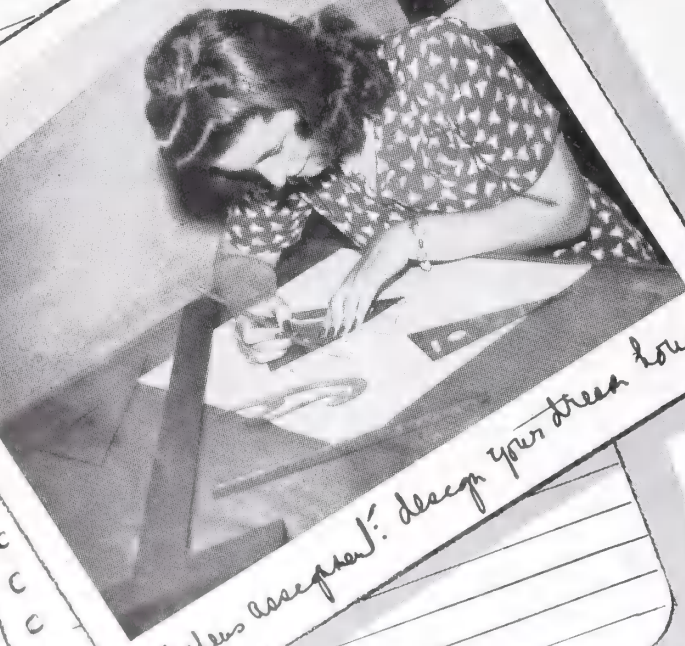 assignment: design your dream hou